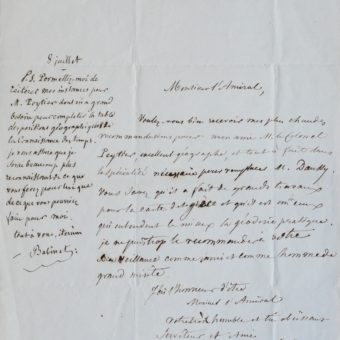 8 juillet
P.S. Permettez-moi de
réitérer mes instances pour
M. Peytier dont on a grand
besoin pour compléter la table
des positions géographiques de
la Connaissance des temps.
je vous assure que je
serai beaucoup plus
reconnaissant de ce que
vous ferez pour lui que
de ce que vous pourriez
faire pour moi.
tout à vous
Babinet
Monsieur l'Amiral,
Voulez-vous bien recevoir mes plus chaudes
recommandations pour mon ami M. le Colonel
Peytier, excellent géographe, et tout à fait dans
la spécialité nécessaire pour remplacer M. Daussy
Vous savez qu'il a fait de grands travaux
pour la carte de Grèce et qu'il est un de ceux
qui entendent le mieux la géodésie pratique.
je le recommande à votre
bienveillance comme ami et comme homme de
grand mérite
J'ai l'honneur d'être
Monsieur l'Amiral
votre très humble et très obéissant
Serviteur et Ami